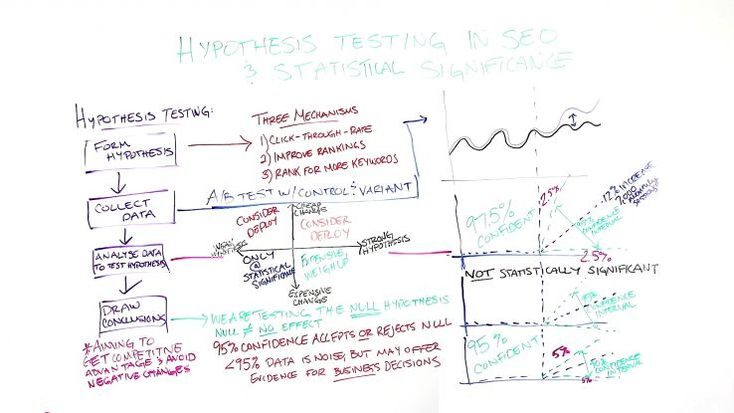 HYPOTHESIS TESTING IN SEO
& STATISTICAL SIGNIFICANCE
HYPOTHESIS TESTING:
FORM
HYPOTHESIS
COLLECT
DATA
ANALYSE DATA
TO TEST HYPOTHESIS
DRAW
CONCLUSIONS
*AIMING TO
GET COMPETITIVE
ADVANTAGE & AVOID
NEGATIVE CHANGES
THREE MECHANISMS
1) CLICK-THROUGH-RATE
2) IMPROVE RANKINGS
3) RANK FOR MORE KEYWORDS
A/B TEST W/ CONTROL & VARIANT
CHEAP
CHANGE
CONSIDER
DEPLOY
CONSIDER
DEPLOY
WEAK
HYPOTHESIS
STRONG
HYPOTHESIS
ONLY
@
STATISTICAL
SIGNIFICANCE
EXPENSIVE
WEIGH UP
EXPENSIVE
CHANGE
WE ARE TESTING THE NULL HYPOTHESIS
NULL ≠ NO EFFECT
95% CONFIDENCE ACCEPTS OR REJECTS NULL
<95% DATA IS NOISE, BUT MAY OFFER
EVIDENCE FOR BUSINESS DECISIONS
97.5%
CONFIDENT
2.5%
95%
CONFIDENCE
INTERVAL
12% INCREASE
7,000
SESSIONS
2.5%
NOT STATISTICALLY SIGNIFICANT
CONFIDENCE
INTERVAL
95%
CONFIDENT
5%
90% CONFIDENCE
INTERVAL
5%